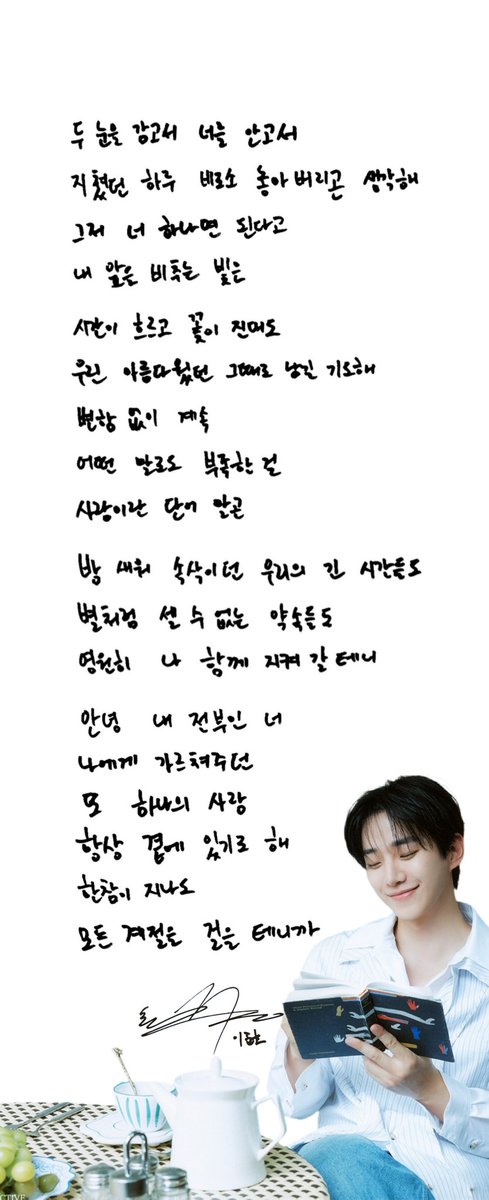 두 눈을 감고서 너를 안고서
지쳤던 하루 비로소 놓아 버리곤 생각해
그저 너 하나면 된다고
내 앞을 비추는 빛은
시간이 흐르고 꽃이 진대도
우린 아름다웠던 그때로 남길 기도해
변함 없이 계속
어떤 말로도 부족한 걸
사랑이란 단어 말곤
밤 새워 속삭이던 우리의 긴 시간들도
별처럼 셀 수 없는 약속들도
영원히 나 함께 지켜 갈 테니
안녕 내 전부인 너
나에게 가르쳐주던
또 하나의 사랑
항상 곁에 있기로 해
한참이 지나도
모든 계절을 걸을 테니까
CTIVE